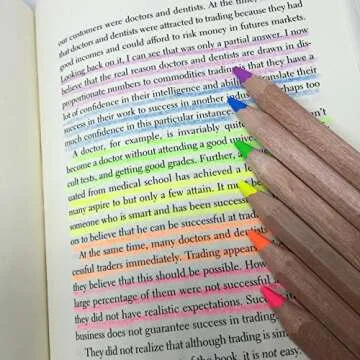 our customers were doctors and dentists. At the time,
that doctors and dentists were attracted to trading because they had
good incomes and could afford to risk money in futures markets.
Looking back on it, I can see that was only a partial answer. I now
believe that the real reason doctors and dentists are drawn in dis-
proportionate numbers to commodities trading is that they have a
lot of confidence in their intelligence and ability translate their
success in their work to success in another perhaps too
much confidence in this particular instance.
A doctor, for example, is invariably quite
become a doctor without attending a good
cult tests, and getting good grades. Further,
ated from medical school has achieved a
many aspire to but only a few attain. It
someone who is smart and has been success
on to believe that he can be successful at
At the same time, many doctors and dentists
cessful traders immediately. Trading appears
they believe that this should be possible. How
large percentage of them were not successful
they did not have realistic expectations.
business does not guarantee success in trading.
They did not realize that although trading is
of the book, it is not easy.